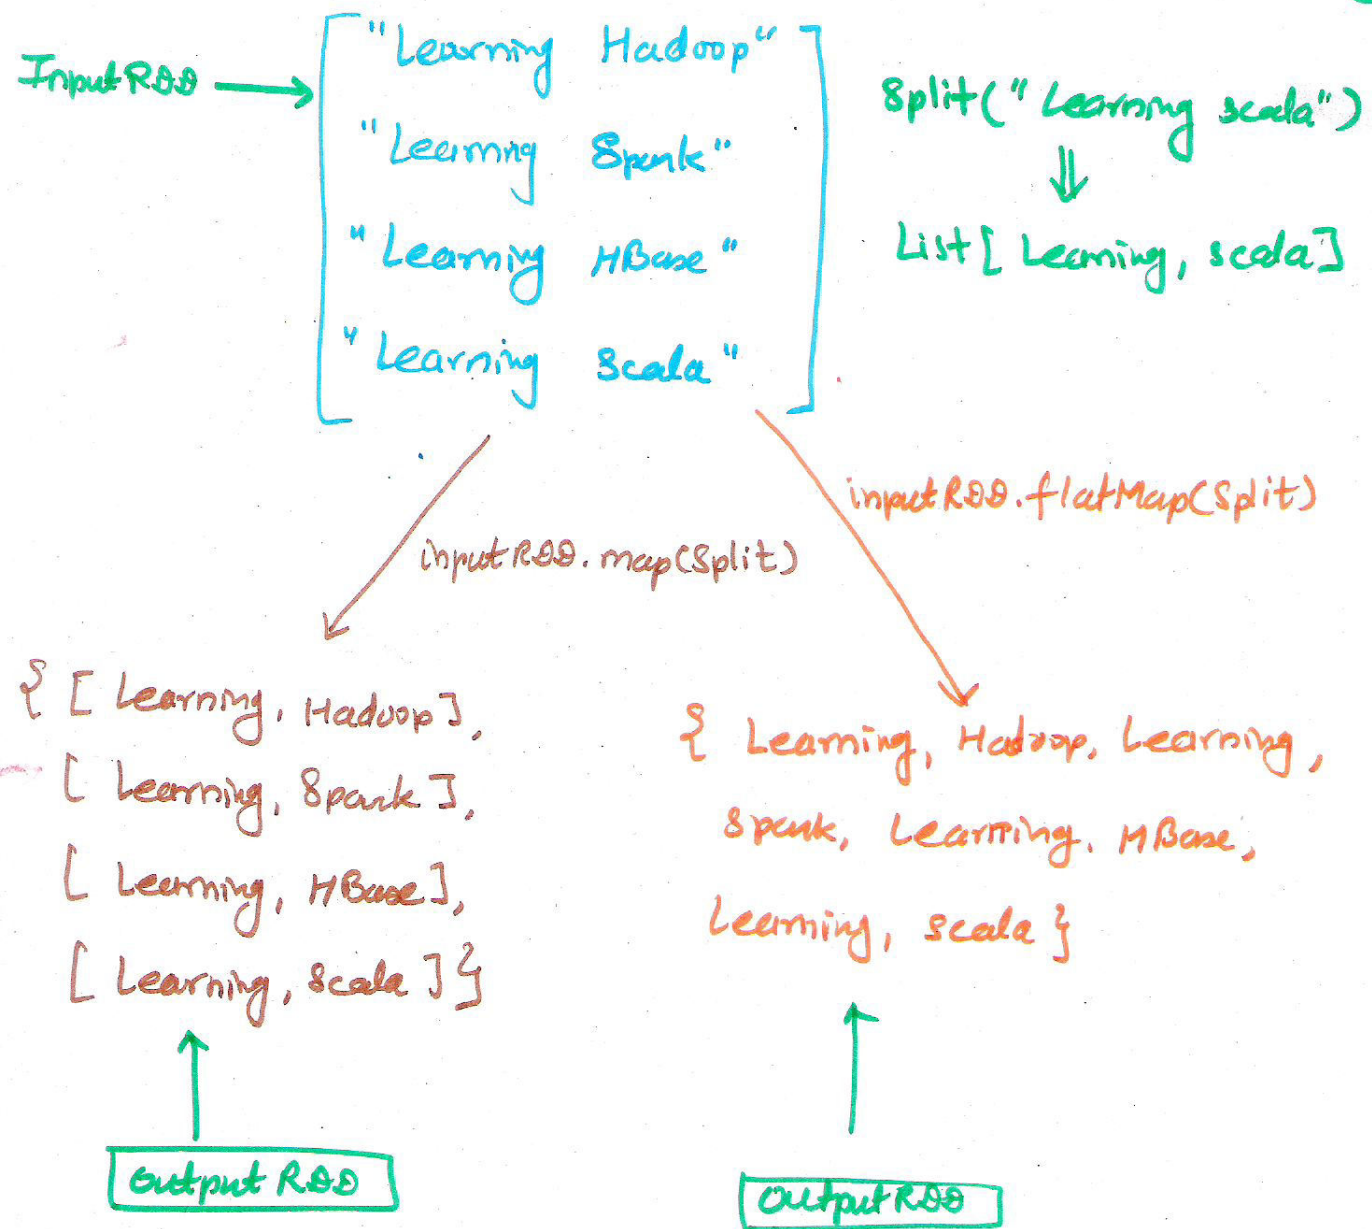 InputRDD
"Learning Hadoop"
"Learning Spark"
"Learning HBase"
"Learning Scala"
Split("Learning scala")
List[Learning, scala]
inputRDD.map(Split)
inputRDD.flatMap(Split)
{ [ Learning, Hadoop],
[ Learning, Spark],
[ Learning, HBase],
[ Learning, Scala ] }
{ Learning, Hadoop, Learning,
Spark, Learning, HBase,
Learning, scala }
OutputRDD
OutputRDD